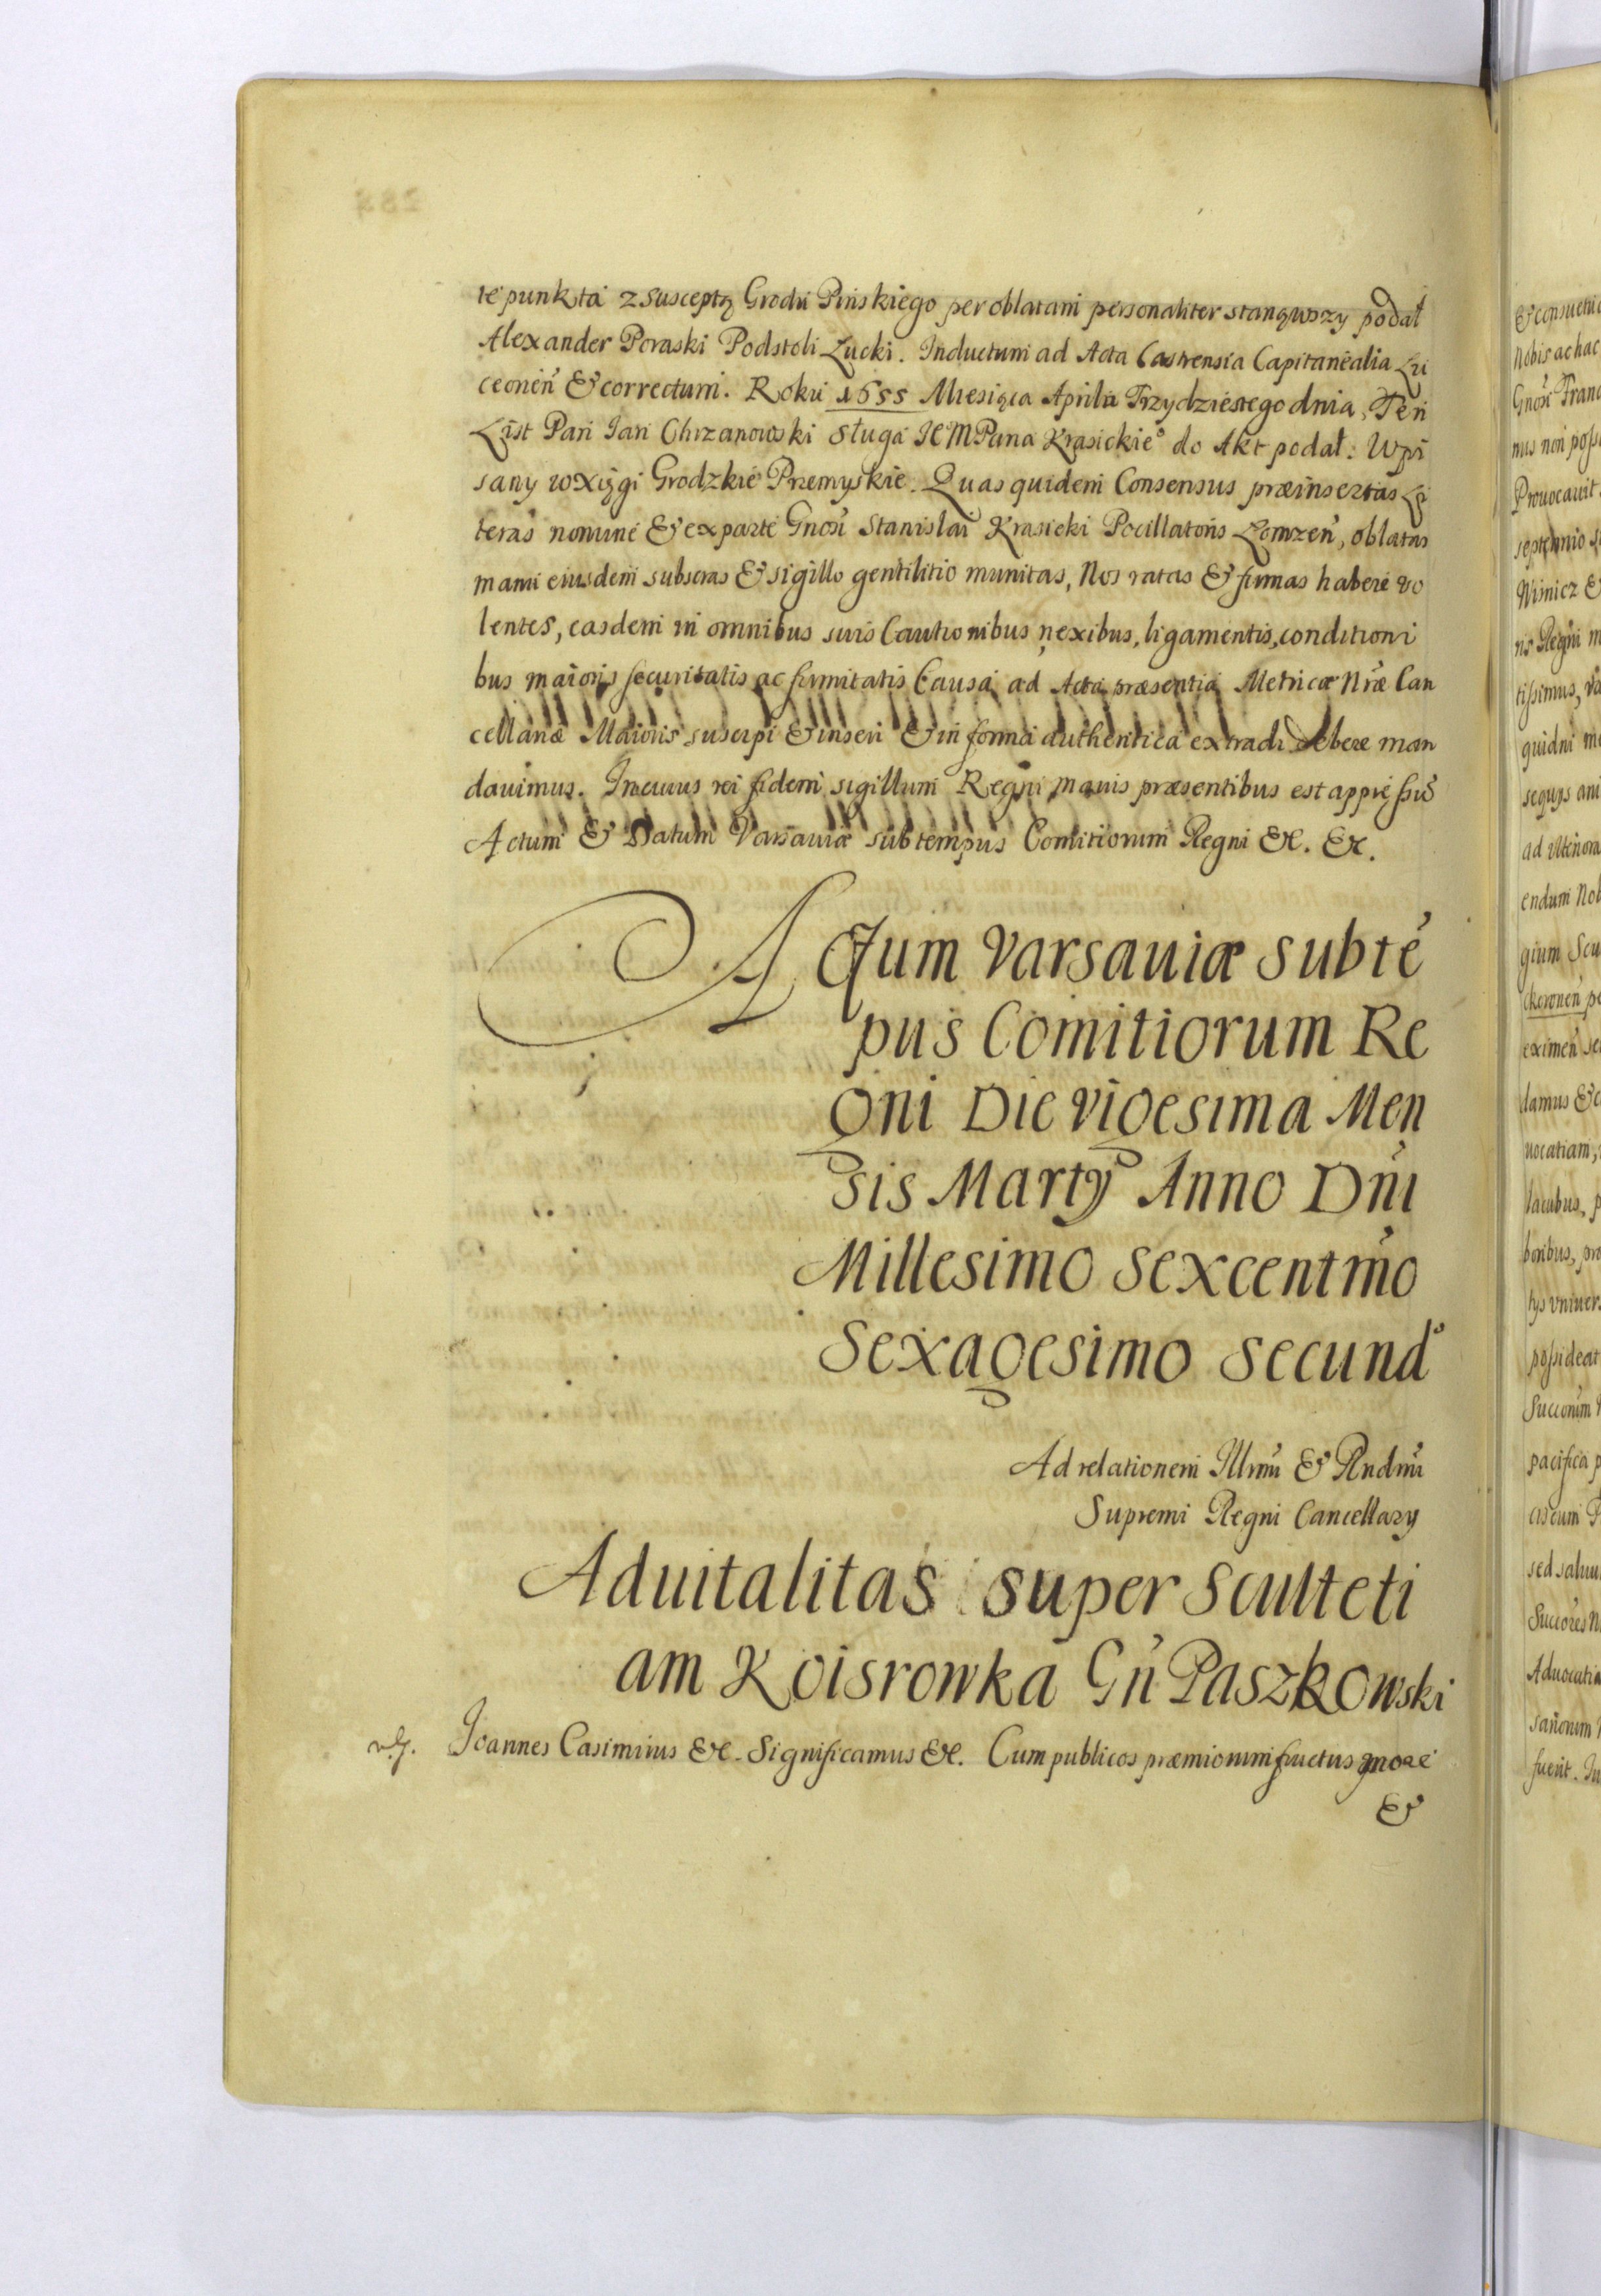 te punkta z susceptą Grodu Pinskiego per oblatam personaliter stanąwszy podał
Alexander Poraski Podstoli Łucki. Inductum ad Acta Castrensia Capitanealia Lu
ceoneñ & correctum. Roku 1655 Miesiąca Aprila Trzydziestego dnia, Ten
List Pan Jan Chrzanowski sługa JEMPana Krasickie° do Akt podał. Wpi
sany w Xięgi Grodzkie Przemyskie. Quas quidem Consensus præinsertas Li
teras nomine & ex parte Gnosi Stanislai Krasicki Pocillatoris Łomzeñ, oblatas
manu eiusdem subscras & sigillo gentilitio munitas, Nos ratas & firmas habere vo
lentes, easdem in omnibus suis Cautionibus nexibus, ligamentis, conditioni
bus maioris securitatis ac firmitatis Causa ad Acta præsentia Metricæ Nræ Can
cellariæ Maioris suscipi & inseri & in forma authentica extradi debere man
dauimus. In cuius rei fidem sigillum Regni Maius præsentibus est appressũ
Actum & Datum Varsauiæ sub tempus Comitiorum Regni &c. &c.
Actum Varsauiæ sub tẽ
pus Comitiorum Re
gni Die vigesima Men
sis Martÿ Anno Dñi
Millesimo sexcentmo
sexagesimo secund°
Ad relationem Illmi & Rndmi
Supremi Regni Cancellary
Aduitalitas super Sculteti
am Koisrowka Gñ Paszkowski
Joannes Casimirus &c. Significamus &c. Cum publicos præmiorum fructus more
&